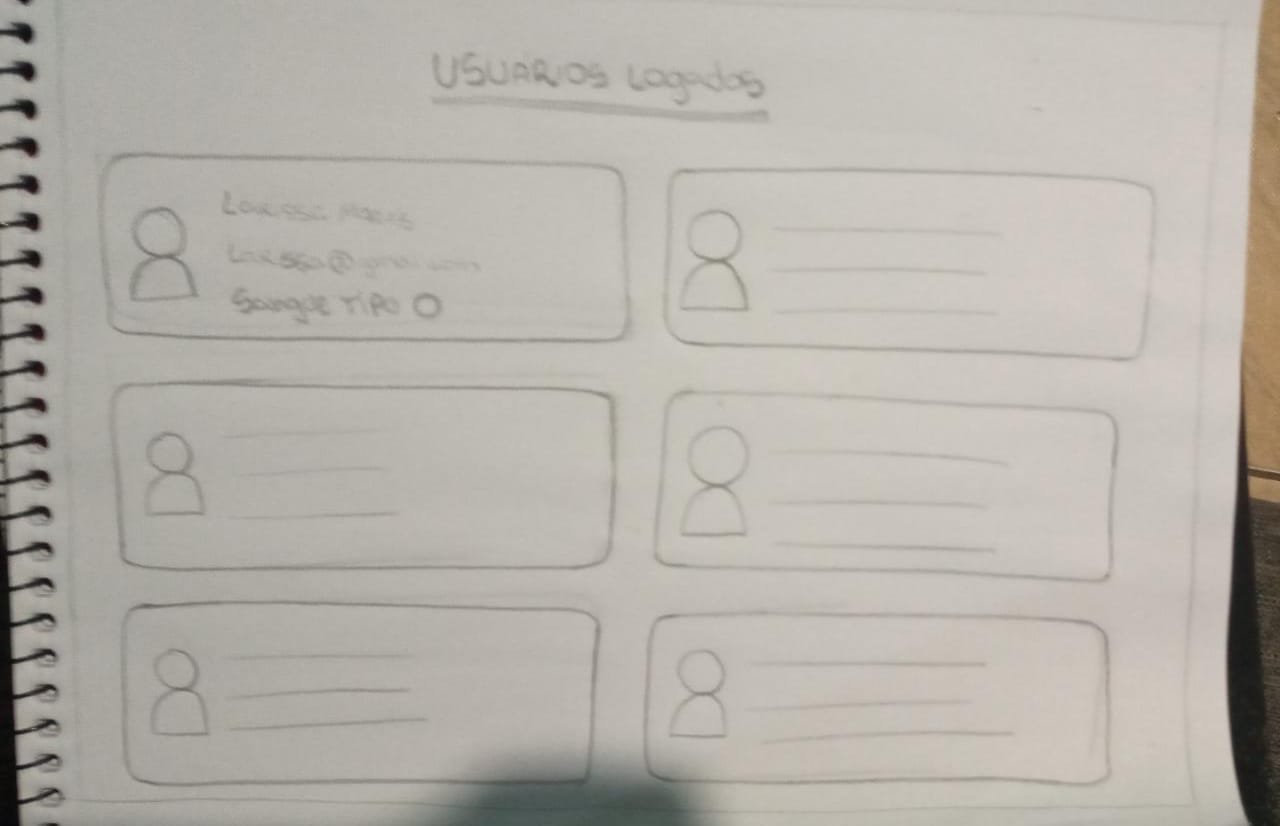 USUÁRIOS Logados
Larissa
Larissa@gmail.com
Sangue TIPO O